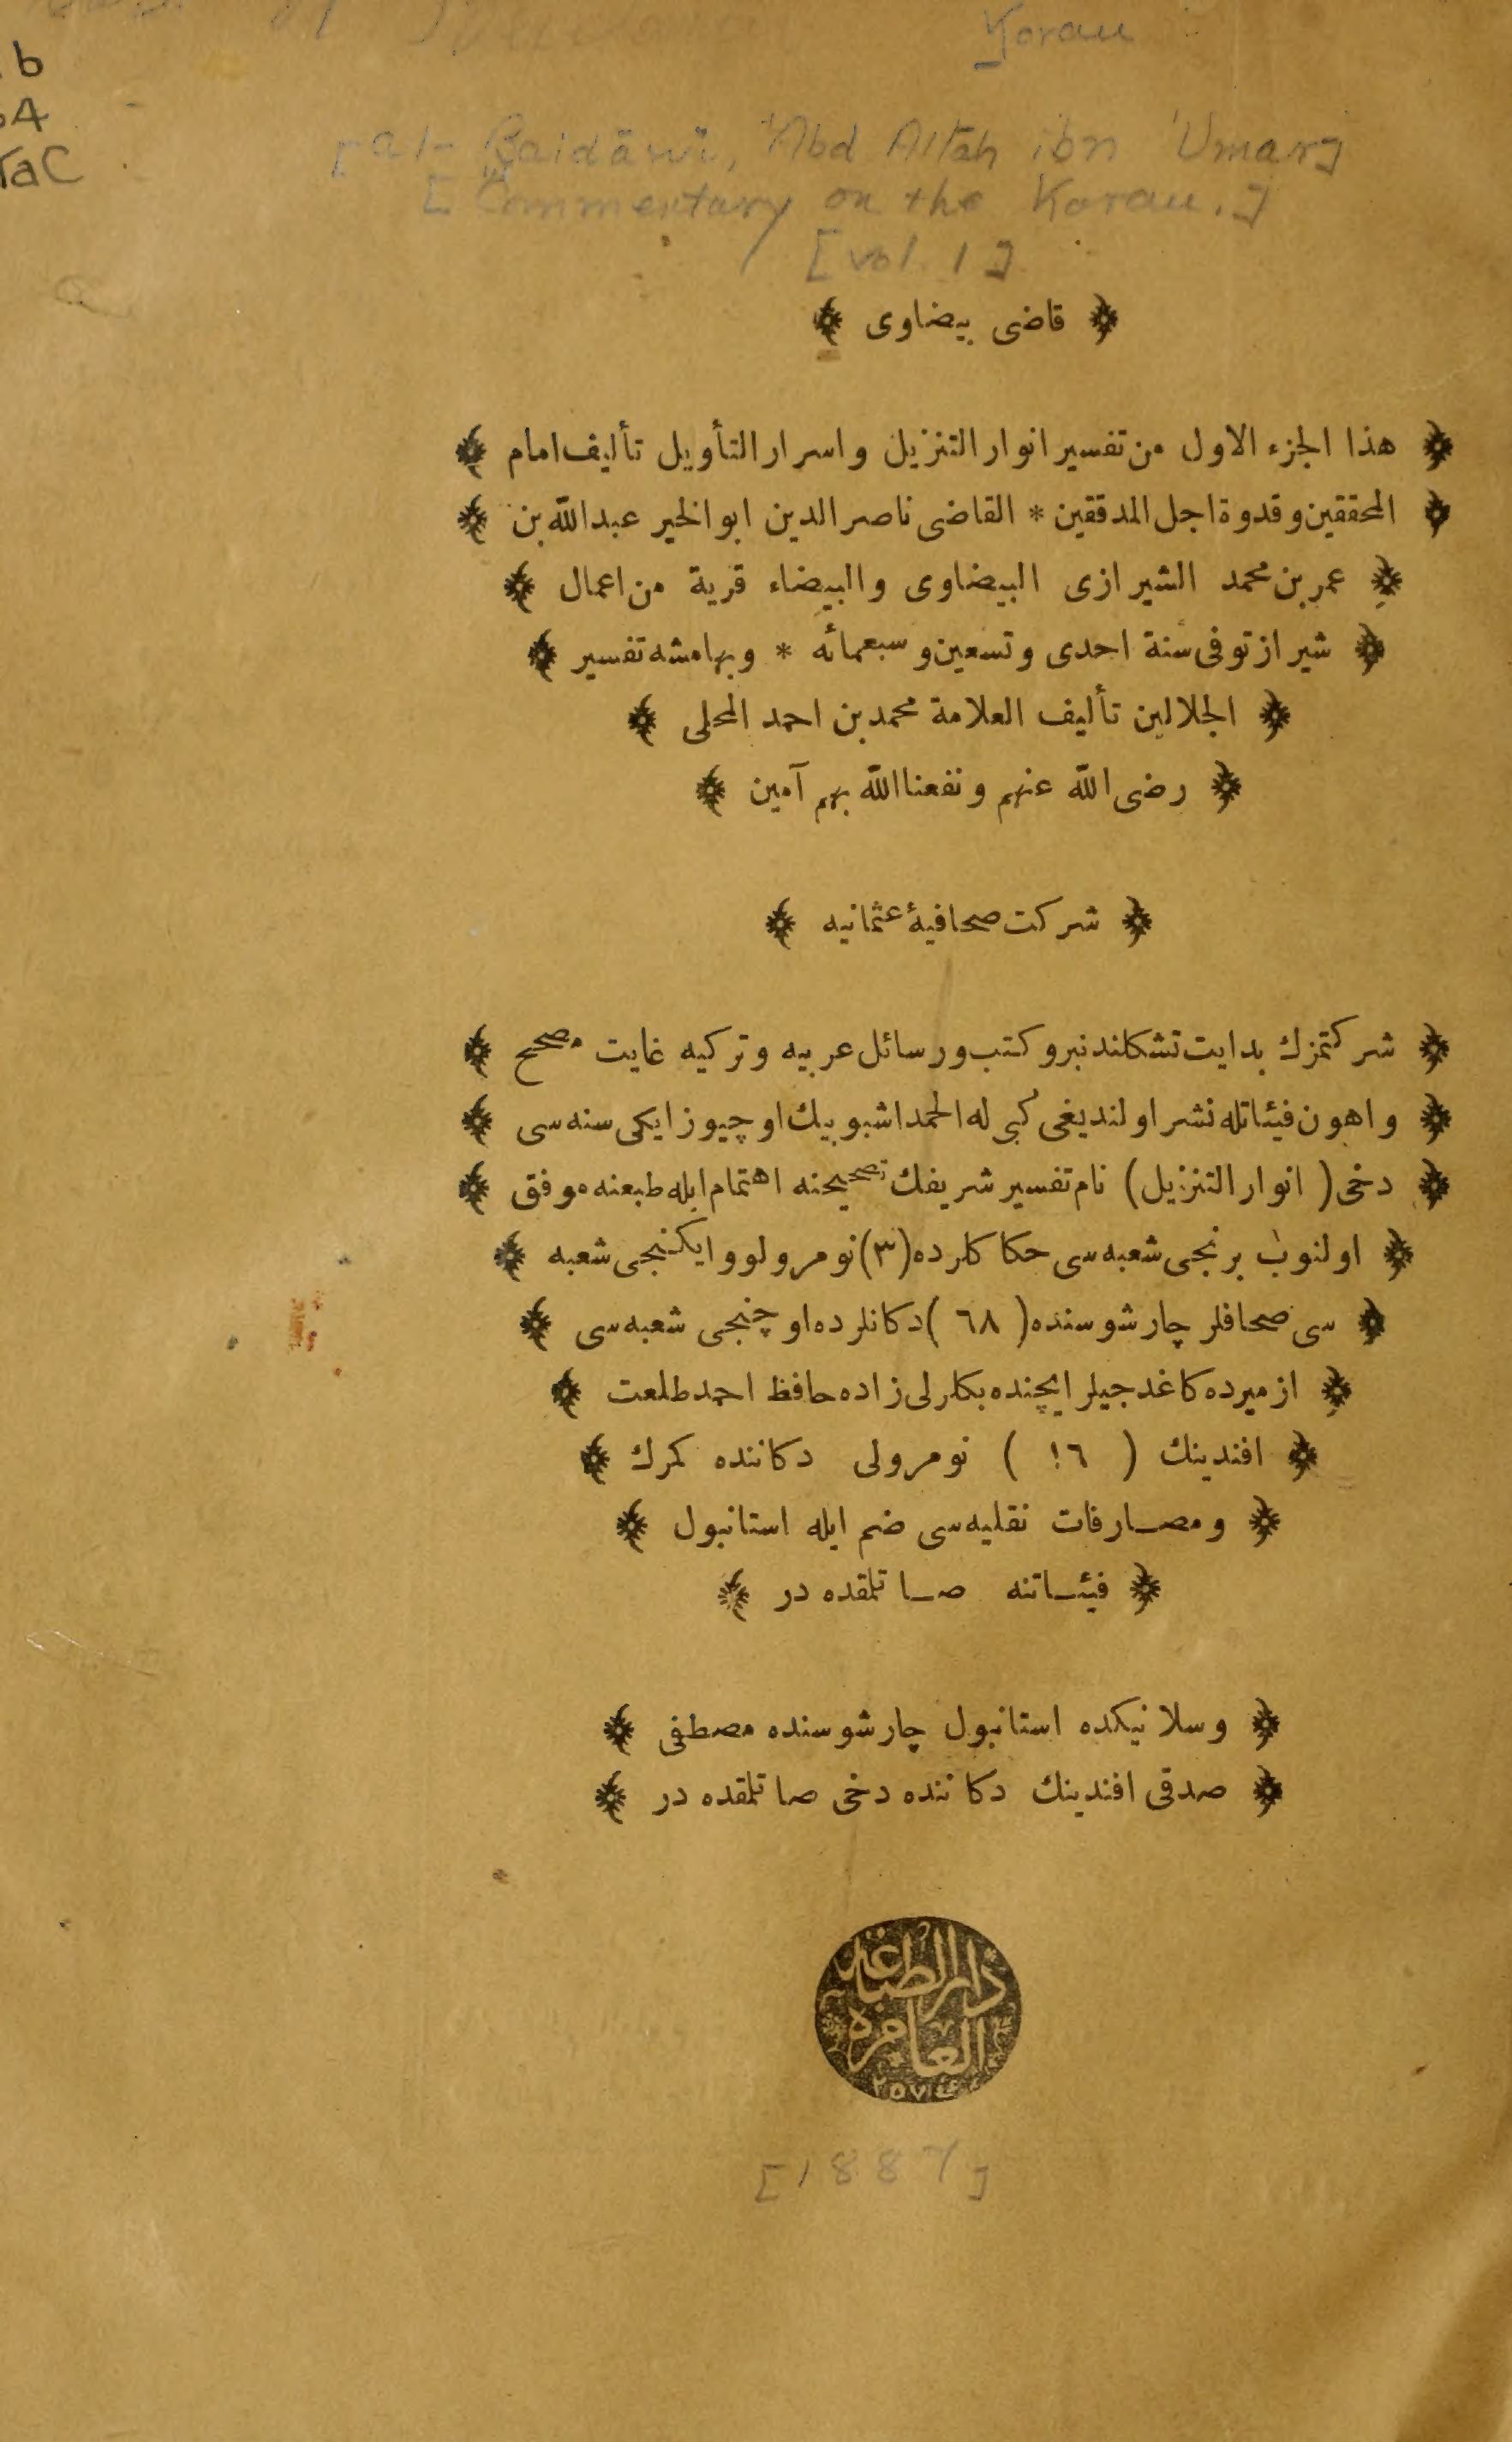 Koran
b
54
TaC
[al- Baidāwī, 'Abd Allāh ibn 'Umar]
[Commentary on the Koran.]
[vol. 1]
﴿ قاضى بيضاوى ﴾
﴿ هذا الجزء الاول من تفسير انوار التنزيل واسرار التأويل تأليف امام ﴾
﴿ المحققين وقدوة اجل المدققين * القاضى ناصر الدين ابو الخير عبدالله بن ﴾
﴿ عمر بن محمد الشيرازى البيضاوى والبيضاء قرية من اعمال ﴾
﴿ شيراز توفى سنة احدى وتسعين وسبعمائه * وبهامشه تفسير ﴾
﴿ الجلالين تأليف العلامة محمد بن احمد المحلى ﴾
﴿ رضى الله عنهم ونفعنا الله بهم آمين ﴾
﴿ شركت صحافيۀ عثمانيه ﴾
﴿ شركتمزك بدايت تشكلندنبرو كتب ورسائل عربيه وتركيه غايت مصحح ﴾
﴿ واهون فيئاتله نشر اولنديغى كبى له الحمد اشبو بيك اوچيوز ايكى سنه سى ﴾
﴿ دخى ( انوار التنزيل ) نام تفسير شريفك تصحيحنه اهتمام ايله طبعنه موفق ﴾
﴿ اولنوب برنجى شعبه سى حكاكلرده (٣) نومرولو وايكنجى شعبه ﴾
﴿ سى صحافلر چارشوسنده ( ٦٨ ) دكانلرده اوچنجى شعبه سى ﴾
﴿ ازميرده كاغدجيلر ايچنده بكلرلى زاده حافظ احمد طلعت ﴾
﴿ افندينك ( ١٦ ) نومرولى دكاننده كمرك ﴾
﴿ ومصارفات نقليه سى ضم ايله استانبول ﴾
﴿ فيئاتنه صاتلمقده در ﴾
﴿ وسلانيكده استانبول چارشوسنده مصطفى ﴾
﴿ صدقى افندينك دكاننده دخى صاتلمقده در ﴾
دار الطباعه
العامره
[1887]